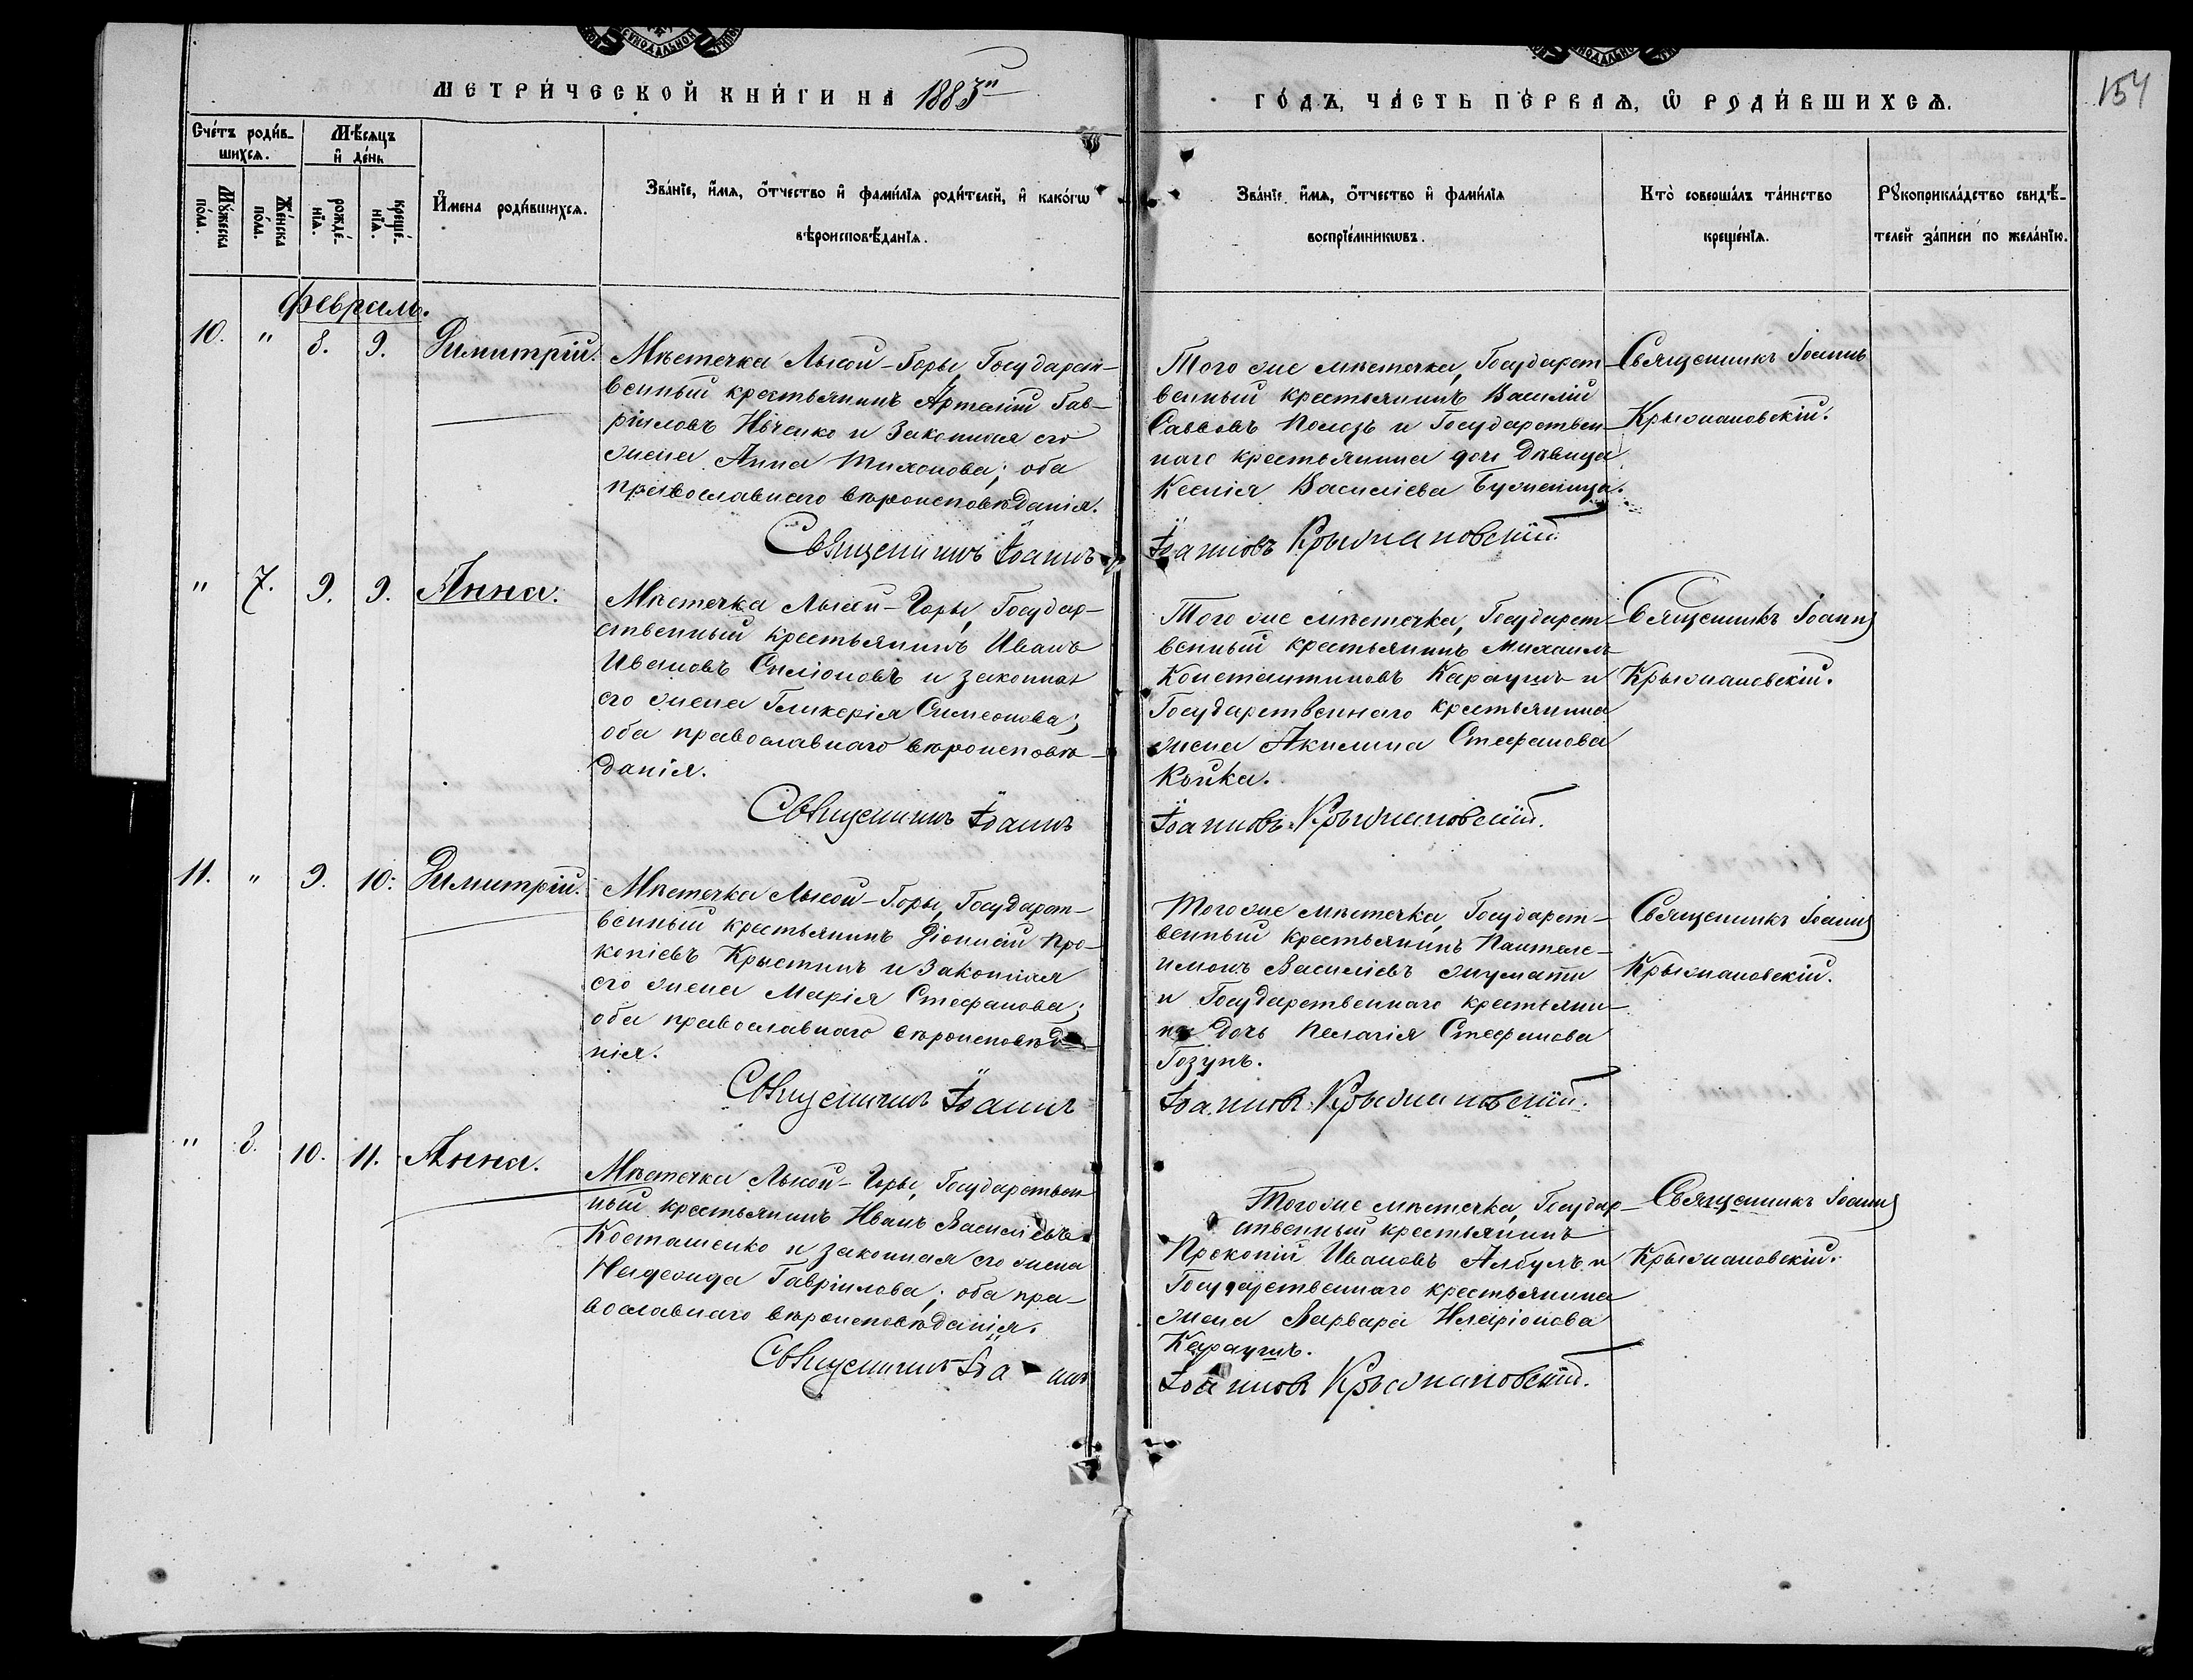 МЕТРИ́ЧЕСКОЙ КНИ́ГИ НА 1883й
ГО́ДЪ, ЧА́СТЬ ПЕ́РВАѦ, Ѡ РОДИ́ВШИХСѦ.
154
Сче́тъ роди́в-
шихсѧ.
Мѣ́сѧцъ
и҆ де́нь
Мꙋ́жеска
по́ла.
Же́нска
по́ла.
рожде́-
нїѧ.
креще́-
нїѧ.
И҆́мена роди́вшихсѧ.
Зва́нїе, и҆́мѧ, ѻ҆́тчество и҆ фами́лїѧ роди́телей, и҆ како́гѡ
вѣроисповѣ́данїѧ.
Зва́нїе и҆́мѧ, ѻ҆́тчество и҆ фами́лїѧ
воспрїе́мникѡвъ.
Кто̀ соверша́лъ та́инство
креще́нїѧ.
Рꙋкоприкла́дство свидѣ́-
телей за́писи по жела́нїю.
Февраль.
10. " 8. 9. Димитрій.
Мѣстечка Лысой-Горы, Государст-
венный крестьянинъ Артемій Гав-
рииловъ Ивченко и Законная его
жена Анна Тихонова; оба
православнаго вѣроисповѣданія.
Того же мѣстечка, Государст-
венный крестьянинъ Василій
Саввовъ Полозъ и Государствен-
наго крестьянина дочь Дѣвица
Ксенія Василіева Буженица.
Священникъ Іоаннъ
Крыжановскій.
Священникъ Іоаннъ Іоанновъ Крыжановскій.
" 7. 9. 9. Анна.
Мѣстечка Лысой-Горы, Государ-
ственный крестьянинъ Иванъ
Ивановъ Силіоновъ и законная
его жена Гликерія Симеонова;
оба православнаго вѣроисповѣ-
данія.
Того же мѣстечка, Государст-
венный крестьянинъ Михаилъ
Константиновъ Караушъ и
Государственнаго крестьянина
жена Акилина Стефанова
Койка.
Священникъ Іоаннъ
Крыжановскій.
Священникъ Іоаннъ Іоанновъ Крыжановскій.
11. " 9. 10. Димитрій.
Мѣстечка Лысой-Горы, Государст-
венный крестьянинъ Діонисій Про-
копіевъ Крыстинъ и Законная
его жена Марія Стефанова;
оба православнаго вѣроисповѣда-
нія.
Того же мѣстечка, Государст-
венный крестьянинъ Пантеле-
имонъ Василіевъ
и Государственнаго крестьяни-
на дочь Пелагія Стефанова
Гозунъ.
Священникъ Іоаннъ
Крыжановскій.
Священникъ Іоаннъ Іоанновъ Крыжановскій.
" 8. 10. 11. Анна.
Мѣстечка Лысой-Горы, Государствен
ный крестьянинъ Иванъ Василіевъ
Косташенко и законная его жена
Надежда Гавріилова; оба пра-
вославнаго вѣроисповѣданія.
Того же мѣстечка, Государ-
ственный крестьянинъ
Прокопій Ивановъ Албулъ и
Государственнаго крестьянина
жена Варвара Иларіонова
Караушъ.
Священникъ Іоаннъ
Крыжановскій.
Священникъ Іоаннъ Іоанновъ Крыжановскій.